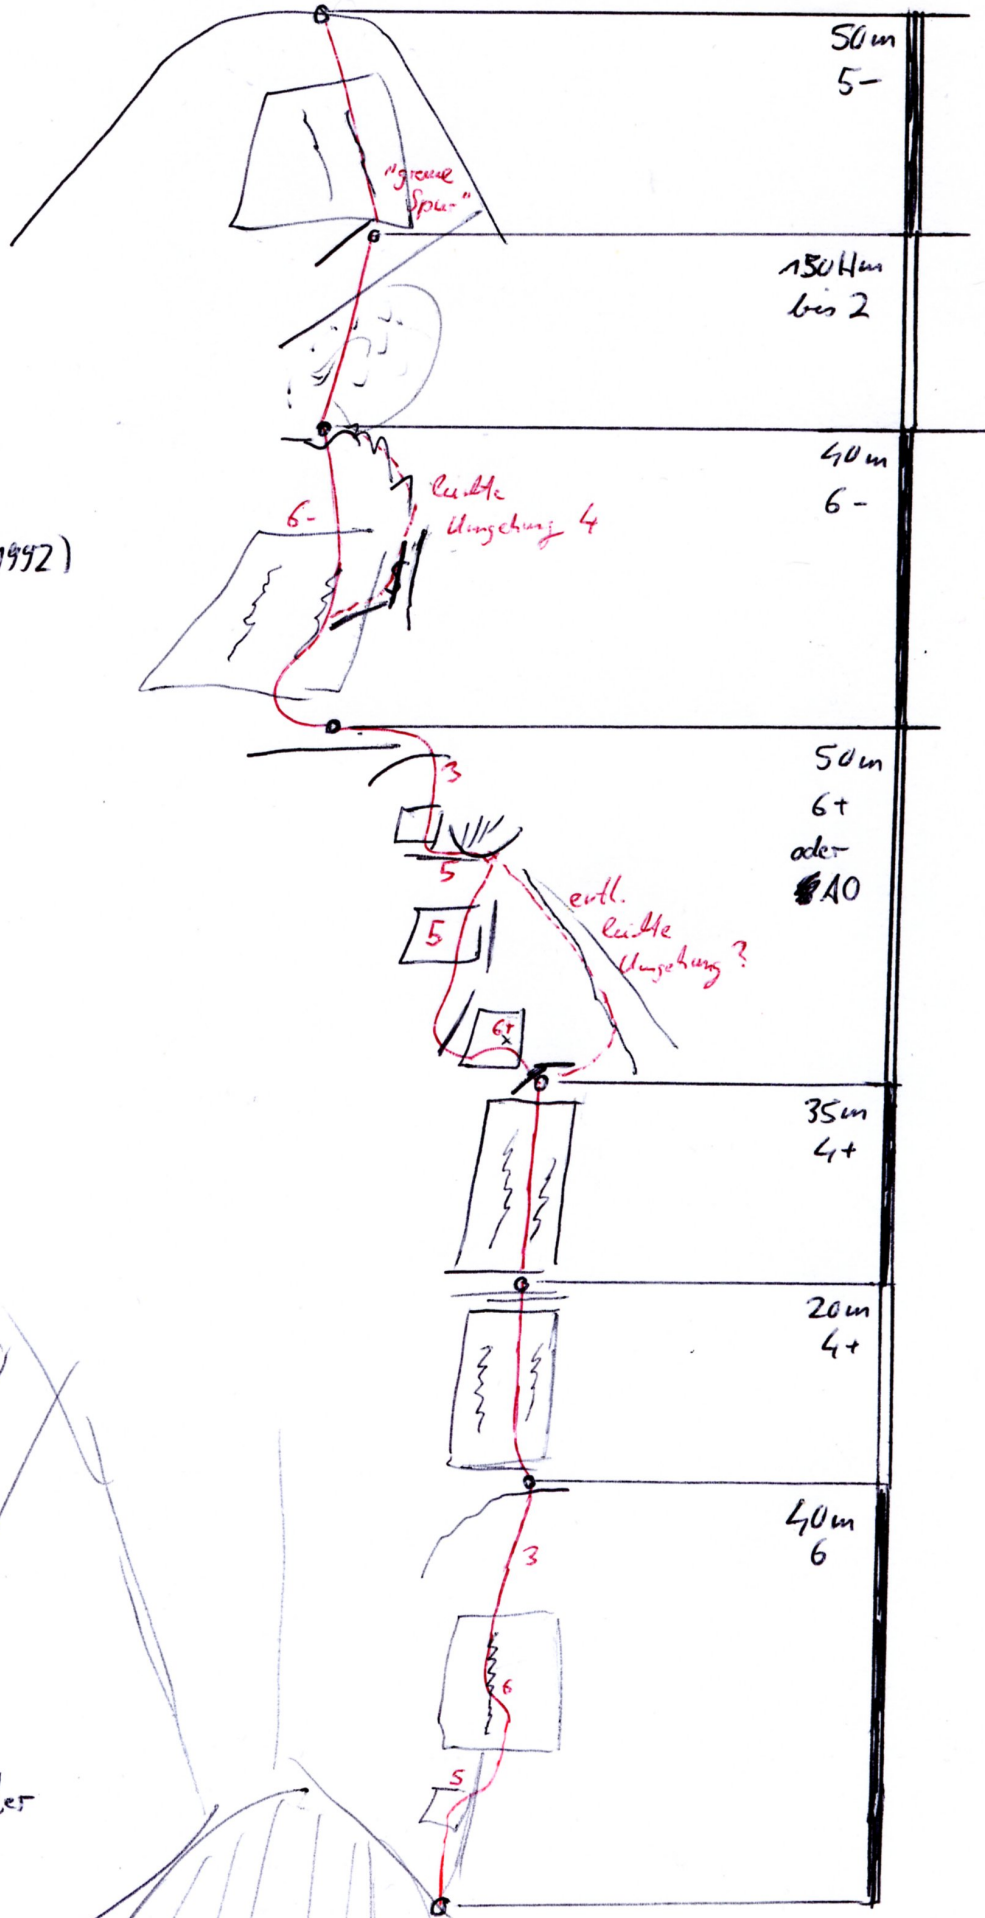 50m
5-
"graue
Spur"
150Hm
bis 2
40m
6-
6-
leichte
Umgehung 4
1992)
50m
6+
oder
A0
3
5
evtl.
leichte
Umgehung?
5
6+
x
35m
4+
20m
4+
40m
6
3
6
5